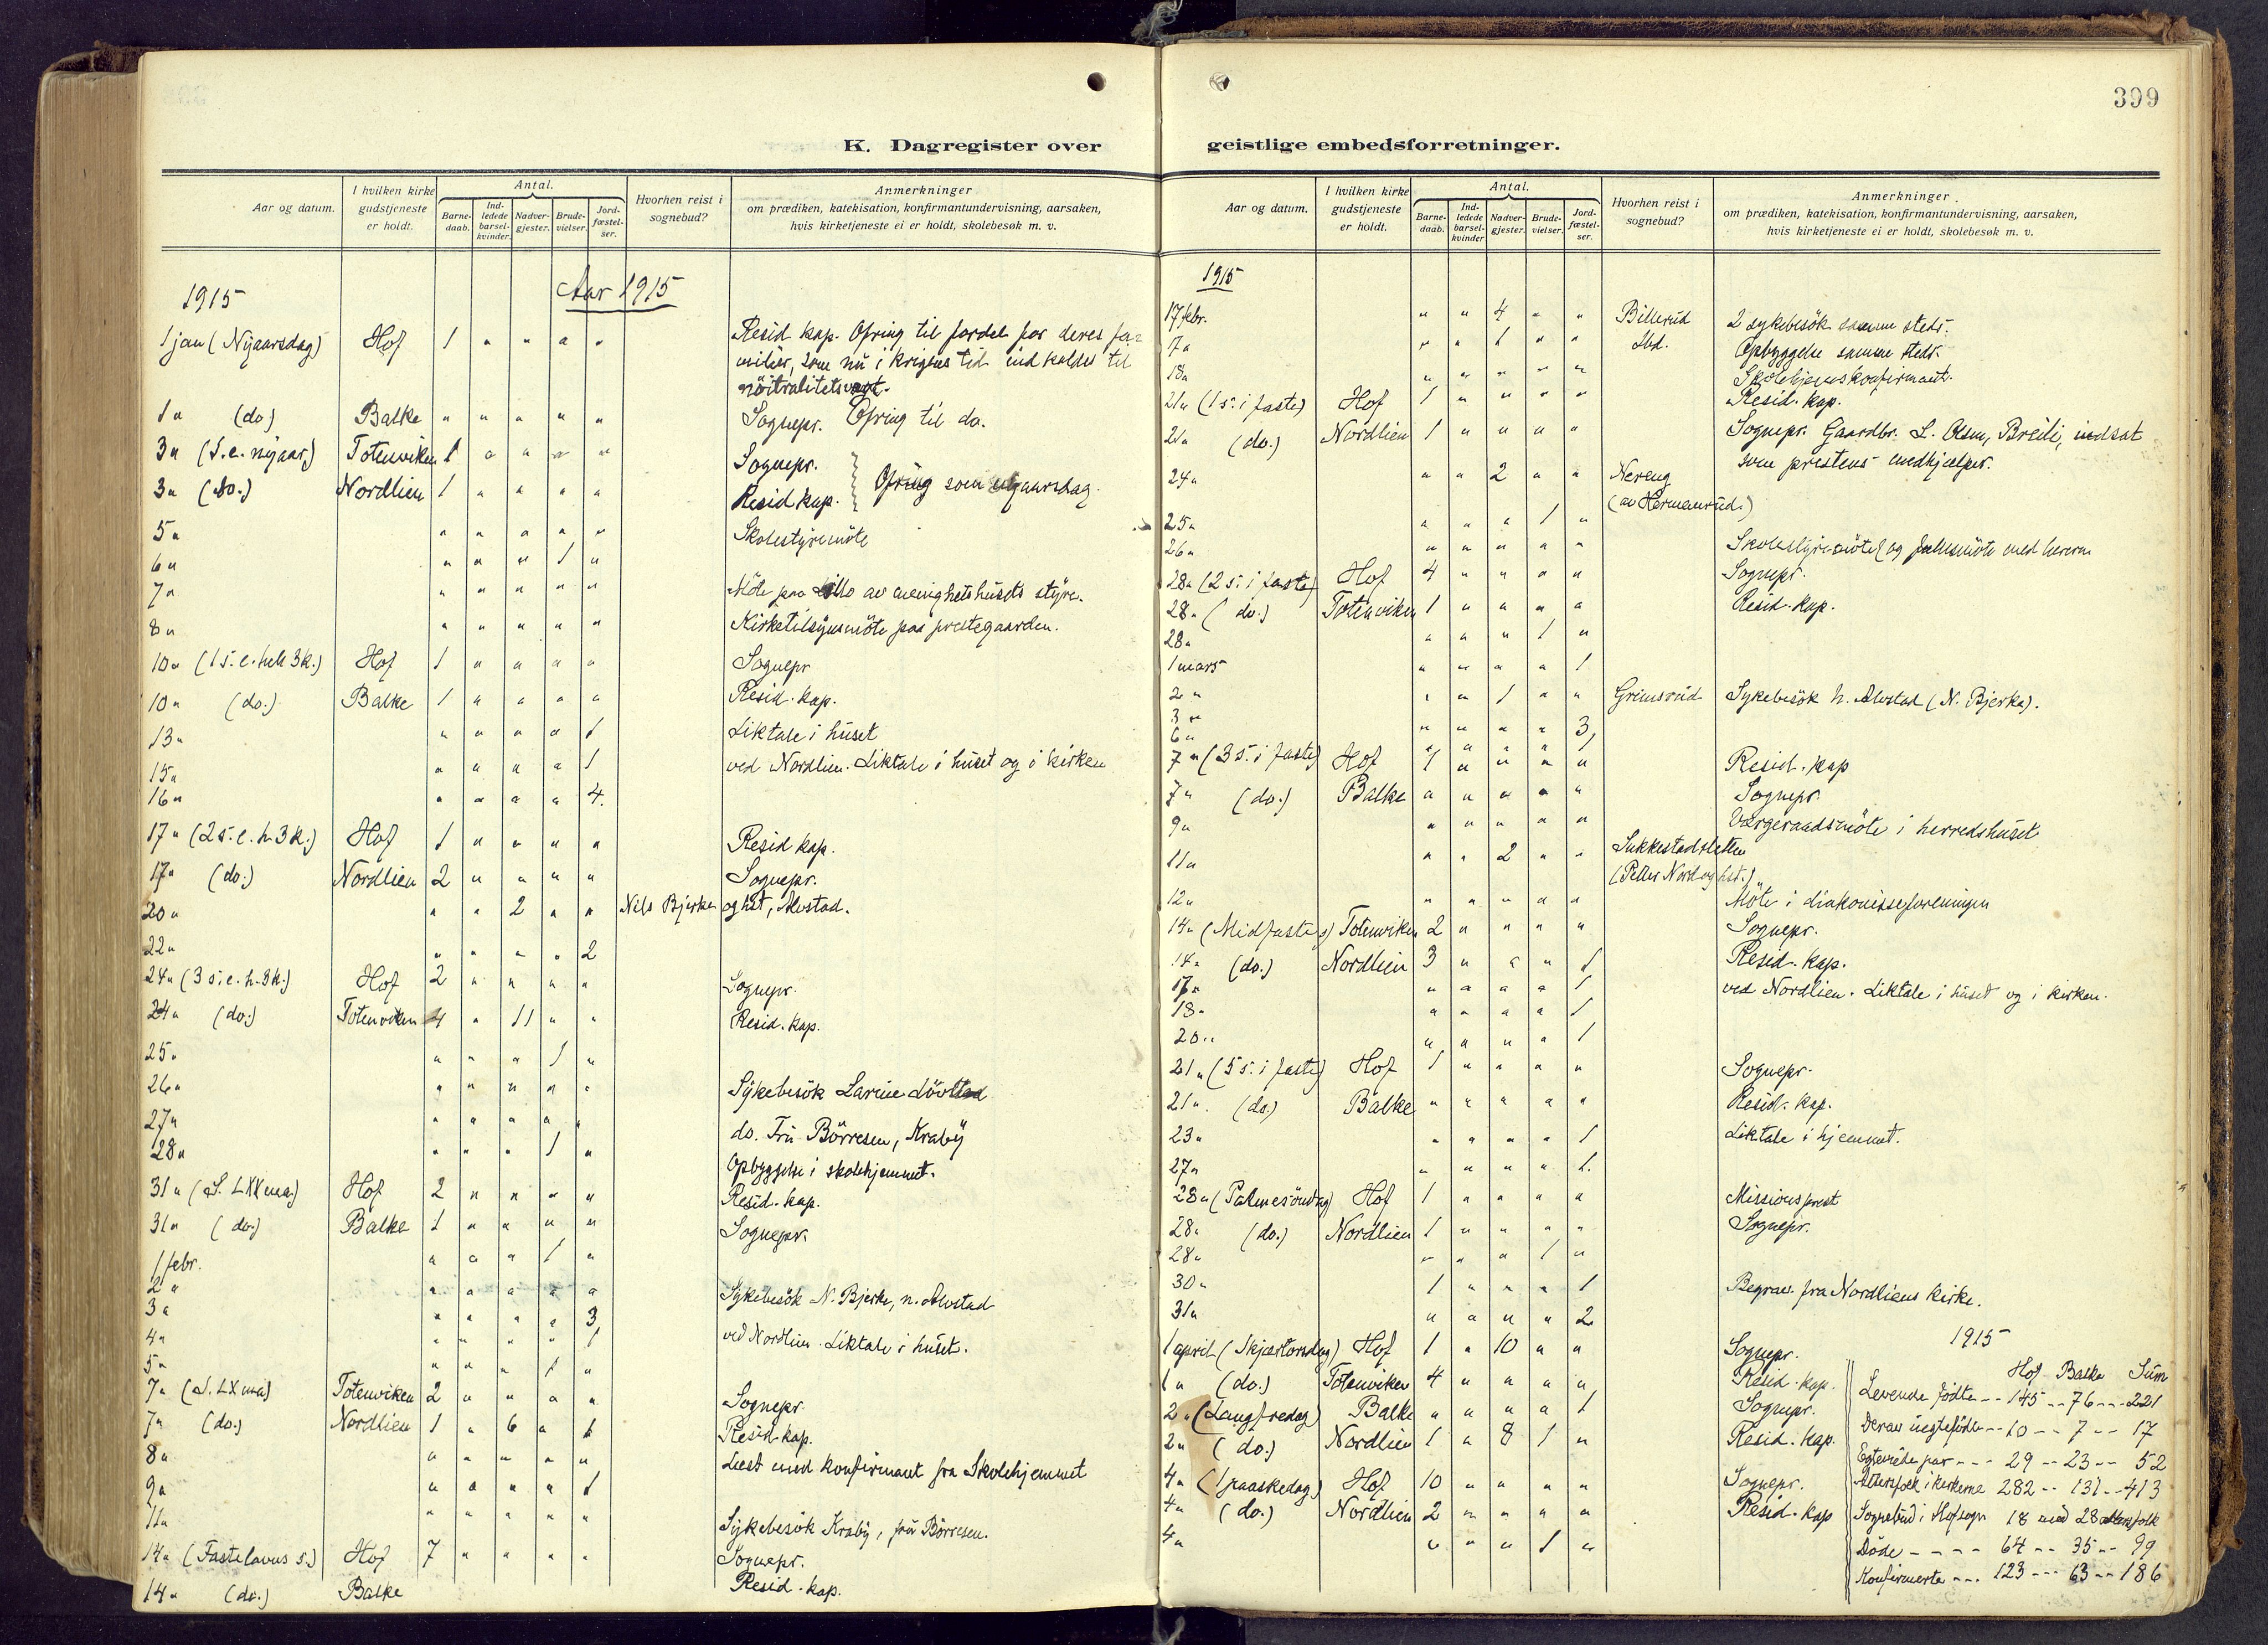 399
K. Dagregister over geistlige embedsforretninger.
Aar og datum. | I hvilken kirke gudstjeneste er holdt. | Antal. | Barne-daab. | Ind-ledede barsel-kvinder. | Nadver-gjester. | Brude-vielser. | Jord-fæstel-ser. | Hvorhen reist i sognebud? | Anmerkninger om prædiken, katekisation, konfirmantundervisning, aarsaken, hvis kirketjeneste ei er holdt, skolebesøk m. v.
1915 Aar 1915
1 jan (Nyaarsdag) Hof 1 " " " " Resid kap. Ofring til fordel for deres fa-
milier, som nu i krigens tid indkaldes til
nöitralitetsvagt.
1 " (do) Balke " " " " " Sognepr. Ofring til do.
3 " (S. e. nyaar) Totenviken 1 " " " " Sognepr.
3 " (do.) Nordlien 1 " " " " Resid kap. } Ofring som nyaarsdag.
5 " " " " " " Skolestyremöte
6 " " " " 1 "
7 " " " " " " Möte paa Lillo av menighetshusets styre.
8 " " " " " " Kirketilsynsmöte paa prestegaarden.
10 " (1 s. e. hell 3 k.) Hof 1 " " " " Sognepr
10 " (do.) Balke 1 " " " " Resid. kap.
13 " " " " " 1 Liktale i huset
15 " " " " " 1 ved Nordlien. Liktale i huset og i kirken
16 " " " " " 4.
17 " (2 s. e. h. 3 k.) Hof 1 " " " " Resid kap.
17 " (do.) Nordlien 2 " " " " Sognepr.
20 " " " 2 " " Nils Bjerke og hst, Alvstad.
22 " " " " " 2
24 " (3 s. e. h. 3 k.) Hof 2 " " " " Sognepr.
24 " (do.) Totenviken 4 " 11 " " Resid. kap.
25 " " " " 1 "
26 " " " " " " Sykebesök Larine Lövstad
27 " " " " " " do. Fru Börresen, Kraby
28 " " " " 1 " Opbyggelse i skolehjemmet.
31 " (S. LXXma) Hof 2 " " " " Resid. kap.
31 " (do.) Balke 1 " " " " Sognepr.
1 febr. " " " 1 "
2 " " " " " " Sykebesök N. Bjerke, n. Alvstad
3 " " " " " 3
4 " " " " " 1 ved Nordlien. Liktale i huset.
5 " " " " 1 "
7 " (S. LXma) Totenviken 2 " " " " Sognepr.
7 " (do.) Nordlien 1 " 6 " 1 Resid. kap.
8 " " " " " " Læst med konfirmant fra Skolehjemmet
9 " " " " " 1
11 " " " " " " Sykebesök Kraby, fru Börresen.
14 " (Fastelavns s.) Hof 7 " " " " Sognepr.
14 " (do.) Balke Resid. kap.
Aar og datum. | I hvilken kirke gudstjeneste er holdt. | Antal. | Barne-daab. | Ind-ledede barsel-kvinder | Nadver-gjester. | Brude-vielser. | Jord-fæstel-ser. | Hvorhen reist i sognebud? | Anmerkninger om prædiken, katekisation, konfirmantundervisning, aarsaken, hvis kirketjeneste ei er holdt, skolebesøk m. v.
1915
17 febr. " " 4 " " Billerud 2 sykebesök samme sted.
17 " " " 1 " " Ibd. Opbyggelse samme sted.
18 " " " " " " Skolehjemskonfirmant.
21 " (1 s. i faste) Hof 1 " " " " Resid. kap.
21 " (do.) Nordlien 1 " " " " Sognepr. Gaardbr. L. Olsen, Breili, indsat
som prestens medhjælper.
24 " " " 2 " " Nereng
(av Hermanrud.)
25 " " " " 1 "
26 " " " " " " Skolestyremöte og fællesmöte med
28 " (2 s. i faste) Hof 4 " " " " Sognepr.
28 " (do.) Totenviken 1 " " " " Resid. kap.
28 " " " " 1 "
1 mars " " " " 1
2 " " " 1 " " Grimsrud Sykebesök h. Alvstad (N. Bjerke).
3 " " " " " 3
6 " " " " " 1
7 " (3 s. i faste) Hof 1 " " " " Resid. kap
7 " (do.) Balke " " " " " Sognepr.
9 " " " " " " Værgeraadsmöte i herredshuset
11 " " " 2 " " Sukkestadsletten
(Petter Nord og hst.)
12 " " " " " " Möte i diakonisseforeningen
14 " (Midfastes) Totenviken 2 " " " " Sognepr.
14 " (do.) Nordlien 3 " " " 1 Resid. kap.
17 " " " " " 1 ved Nordlien. Liktale i huset og i kirken.
18 " " " " " 1
20 " " " " " 1
21 " (5 s. i faste) Hof 1 " " " " Sognepr.
21 " (do.) Balke " " " " " Resid. kap.
23 " " " " " 1 Liktale i hjemmet.
27 " " " " " 1.
28 " (Palmesöndag) Hof 1 " " " " Missionsprest
28 " (do.) Nordlien 1 " " " " Sognepr.
28 " " " " 1 "
30 " 1 " " " 1 Begrav. fra Nordliens kirke.
31 " " " " " 2
1 april (Skjærtorsdag) Hof 1 " 10 " " Sognepr.
1 " (do.) Totenviken 4 " " " " Resid. kap.
2 " (Langfredag) Balke " " " " 1 Sognepr.
2 " (do.) Nordlien 1 " 8 1 " Resid. kap.
4 " (1 paaskedag) Hof 10 " " " " Sognepr.
4 " (do.) Nordlien 2 " " " " Resid. kap
4 " " " " 1 "
1915
Hof Balke Sum
Levende födte -- 145 -- 76 -- 221
Derav uegtefödte -- 10 -- 7 -- 17
Egteviede par --- 29 -- 23 -- 52
Altersfolk i kirkerne 282 -- 131 -- 413
Sognebud i Hofsogn 18 med 28 altersfolk
Döde ---- 64 -- 35 -- 99
Konfirmerte --- 123 --- 63 -- 186